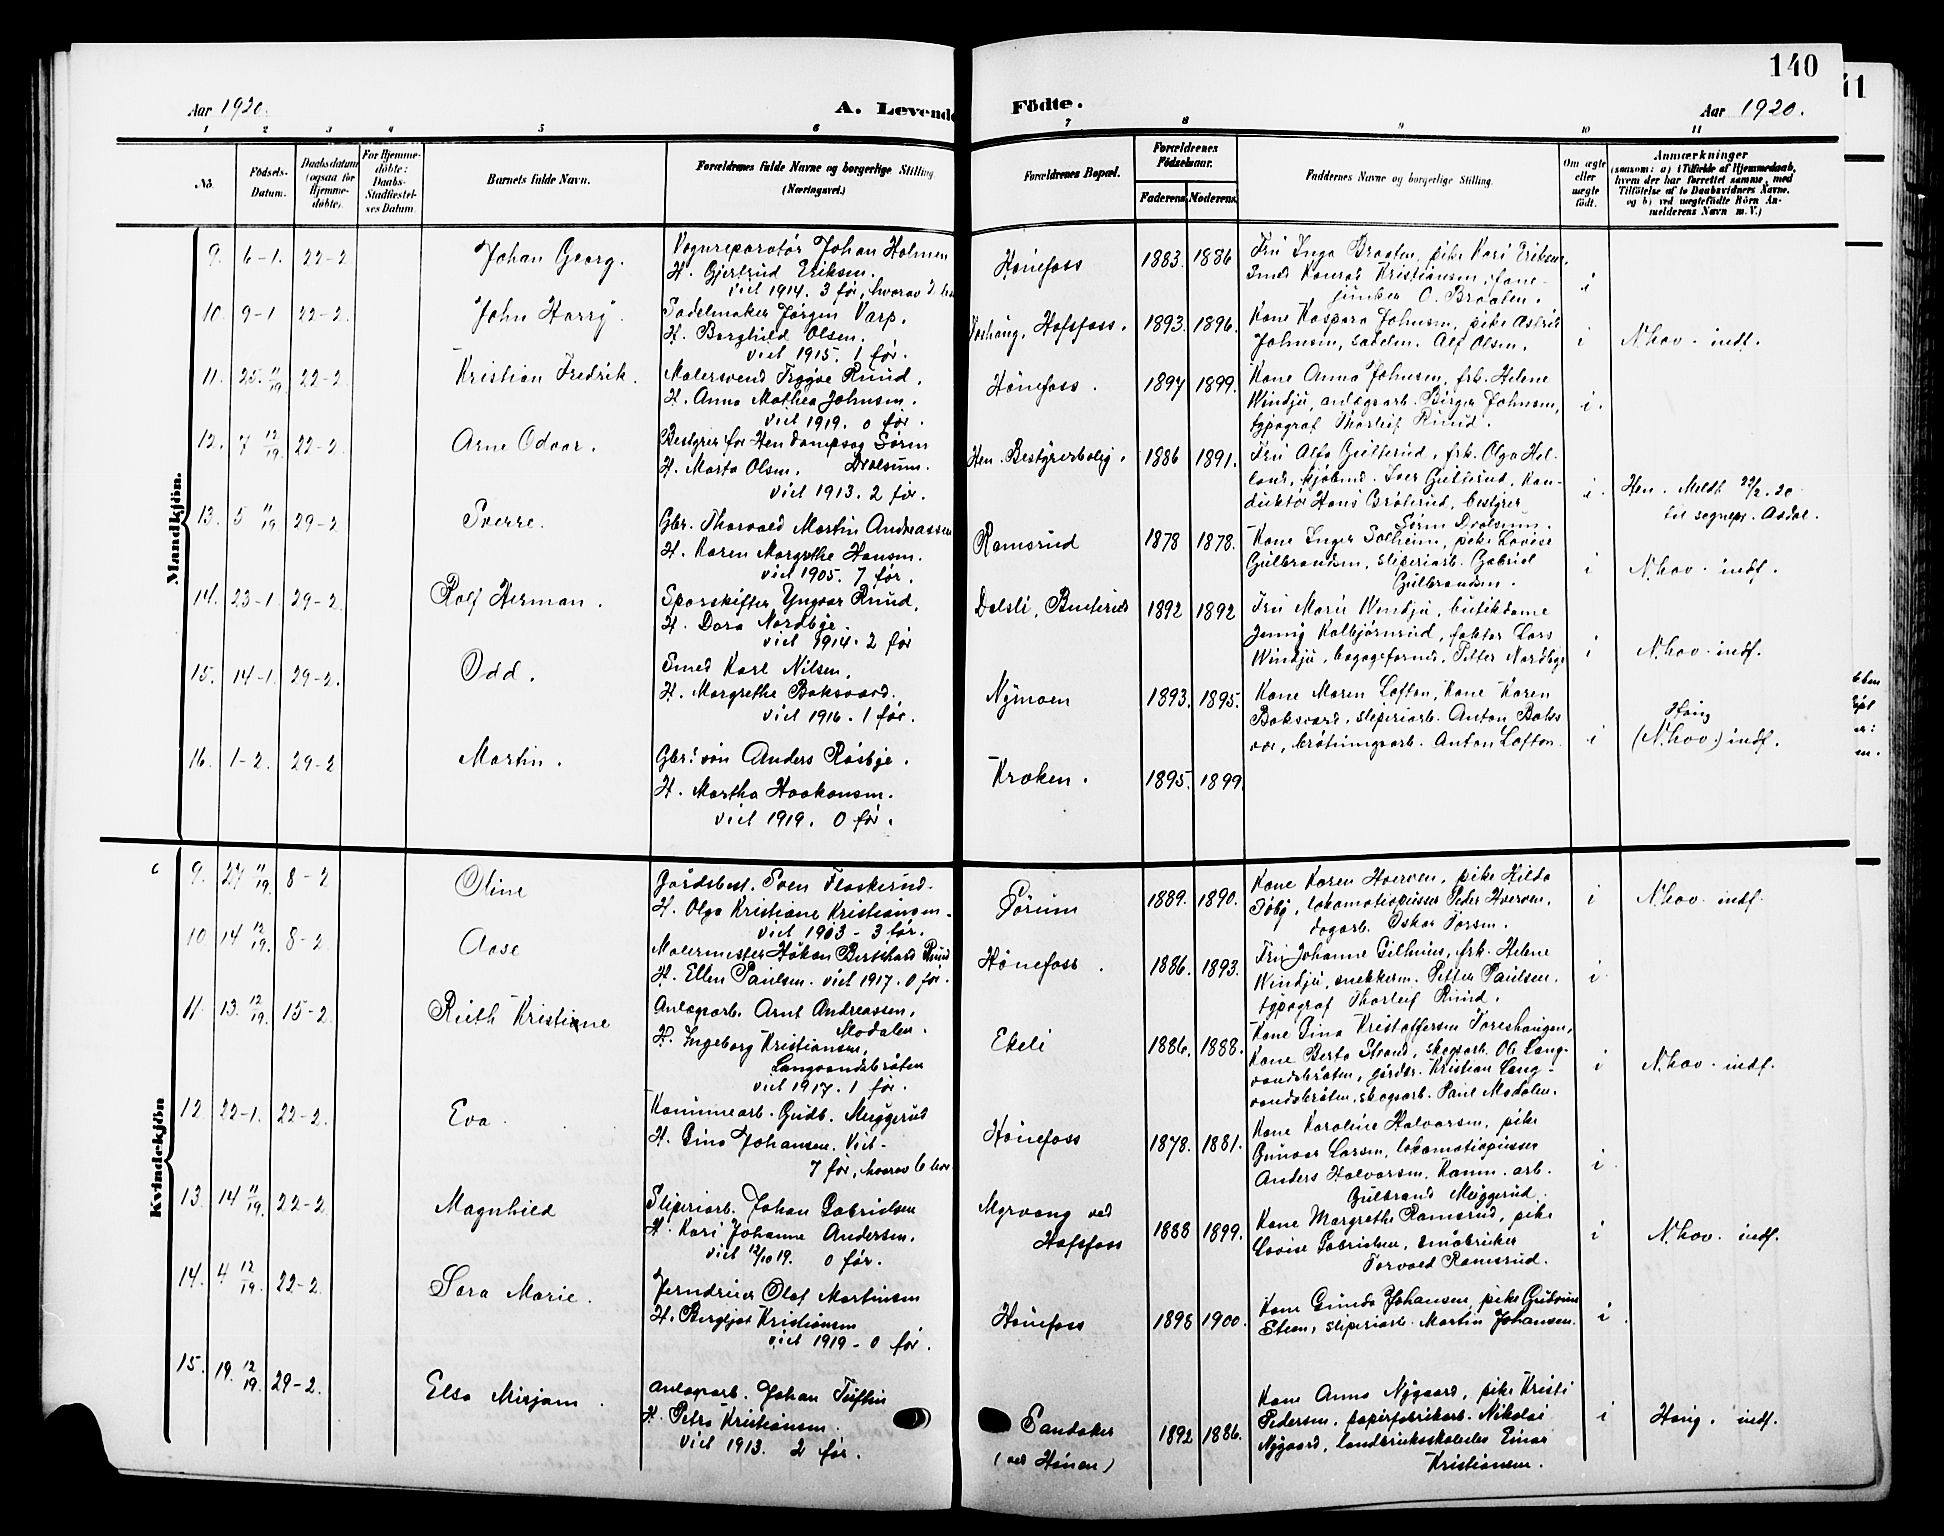 140
Aar 1920.
A. Levende
Födte.
Aar 1920.
1 2 3 4 5 6 7 8 9 10 11
No.
Födsels-Datum.
Daabsdatum (ogsaa for Hjemmedöbte).
For Hjemmedöbte: Daabs-Stadfæstelses Datum.
Barnets fulde Navn.
Forældrenes fulde Navne og borgerlige Stilling (Næringsvei.)
Forældrenes Bopæl.
Forældrenes Födselsaar.
Faderens Moderens.
Faddernes Navne og borgerlige Stilling.
Om ægte eller uægte født.
Anmærkninger
(saasom: a) i Tilfælde af Hjemmedaab,
hvem der har forrettet samme, med
Tilföielse af to Daabsvidners Navne,
og b) ved uægtefødte Börn An-
melderens Navn m. V.)
Mandkjön.
9. 6-1. 22-2 Johan Georg. Vognreparatör Johan Holmen
H. Gjertrud Eriksen.
viet 1914. 3 før, hvorav 2 lev
Hönefoss 1883. 1886 Fru Inga Braaten, pike Kari Eriksen,
Smed Konrad Kristiansen, fane-
junker O. Braaten. i
10. 9-1 22-2. John Harry. Sadelmaker Jørgen Varp.
H. Borghild Olsen.
viet 1915. 1 før.
Hofsfoss. 1893. 1896. Kone Kaspara Johnsen, pike Astrid
Johnsen, sadelm. Alf Olsen. i N.hov. indf.
11. 25. 11/19 22-2 Kristian Fredrik. Malersvend Trygve Ruud,
H. Anna Mathea Johnsen.
viet 1919. 0 før.
Hönefoss. 1897 1899. Kone Anna Johnsen, frk. Helene
Windju, anlægsarb. Birger Johnsen,
typograf Thorleif Ruud. i.
12. 7 12/19. 22-2. Arne Odvar. Bestyrer for Hen Dampsag Sören
H. Marta Olsen. Drolsum.
viet 1913. 2 før.
Hen. Bestyrerbolig. 1886 1891. Fru Alfa Gulterud, frk. Olga Hol-
land, kjöbmd. Iver Gulterud, kon-
duktør Hans Bröterud, bestyrer
Sören Drolsum. i. Hen. Meldt 22/2.20
til sognepr. Asdal.
13. 5 11/19 29-2 Sverre. Gbr. Thorvald Martin Andreassen
H. Karen Margrethe Hansen.
viet 1905. 7 før.
Ramsrud 1878 1878. Kone Inger Solheim, pike Lovise
Gulbrandsen, sliperiarb. Gabriel
Gulbrandsen. i N.hov. indf.
14. 23-1. 29-2 Rolf Herman. Sporskifter Yngvar Ruud,
H. Dora Nordbye.
viet 1914. 2 før
Dalsli, Busterud 1892 1892 Fru Marie Windju, butikdame
Jenny Kolbjørnsrud, faktor Lars
Windju, bagageformd. Petter Nordbye i N.hov. indf.
15. 14-1. 29-2. Odd. Smed Karl Nilsen,
H. Margrethe Baksvard.
viet 1916. 1 før.
Nymoen 1893. 1895. Kone Maren Loften, Kone Karen
Baksvard, sliperiarb. Anton Baks
var, brötningsarb. Anton Loften. i Haug
(N.hov.) indf.
16. 1-2. 29-2 Martin. Gbr! søn Anders Røsbye.
H. Martha Haakonsen.
viet 1919. 0 før.
Kroken. 1895. 1899.
Kvindekjön
9. 27 11/19. 8-2 Oline Gårdsbest. Sven Flaskerud.
H. Olga Kristiane Kristiansen.
viet 1903 - 3 før.
Sörum 1889. 1890. Kone Karen Hverven, pike Hilda
Söby, lokomotivpusser Peder Hverven,
dagarb. Oskar Torsen. i N.hov. indf.
10 14 12/19. 8-2 Aase Malermester Håkon Bernhard Ruud
H. Ellen Paulsen. viet 1917. 0 før.
Hönefoss. 1886. 1893. Fru Johanne Gilhuus, frk. Helene
Windju, snekkerm. Petter Paulsen,
typograf Thorleif Ruud. i
11. 13. 12/19. 15-2. Ruth Kristiane Anlægsarb. Arnt Andreassen,
Modalen.
H. Ingeborg Kristiansen,
Langvandsbråten
viet 1917. 1 før.
Ekeli 1886. 1888. Kone Gina Kristoffersen Toreshaugen,
Kone Berta Strand, skogsarb. Ole Lang-
vandsbråten, gårdbr. Kristian Lang-
vandsbråten, skogsarb. Paul Modalen. i N.hov. indf.
12. 22-1. 22-2. Eva. Kommunearb. Gudb. Muggerud
H. Gina Johansen. Viet-
7 før, hvorav 6 lev.
Hönefoss 1878. 1881. Kone Karoline Halvorsen, pike
Gunvor Larsen, lokomotivpusser
Anders Halvorsen, komm. arb.
Gulbrand Muggerud. i.
13. 14 11/19. 22-2. Magnhild Sliperiarb. Johan Gabrielsen
H. Kari Johanne Andersen.
viet 12/10 19. 0 før.
Myrvang ved
Hofsfoss 1888 1899. Kone Margrethe Ramsrud, pike
Lovise Gabrielsen, småbruker
Torvald Ramsrud. i N.hov. indf.
14. 4 12/19. 22-2. Sara Marie. Jerndreier Olaf Martinsen
H. Bergljot Kristiansen
viet 1919 - 0 før.
Hönefoss 1898 1900. Kone Gunda Johansen, pike Gudrun
Steen, sliperiarb. Martin Johansen. i.
15. 19. 12/19. 29-2. Elsa Mirjam. Anlægsarb. Johan Tuftin
H. Petra Kristiansen.
viet 1913. 2 før.
Sandaker
(ved Hönen) 1892 1886. Kone Anna Nygaard, pike Kristi
Pedersen, papirfabrikarb. Nikolai
Nygaard, landbruksskoleelev Einar
Kristiansen. i Haug. indf.